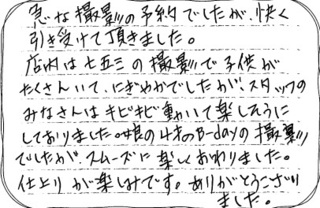 急な撮影の予約でしたが、快く
引き受けて頂きました。
店内は七五三の撮影で子供が
たくさんいて、にぎやかでしたが、スタッフの
みなさんはキビキビ動いて楽しそうに
しておりました。娘の4才のB-dayの撮影
でしたが、スムーズに楽しくおわりました。
仕上りが楽しみです。ありがとうござい
ました。